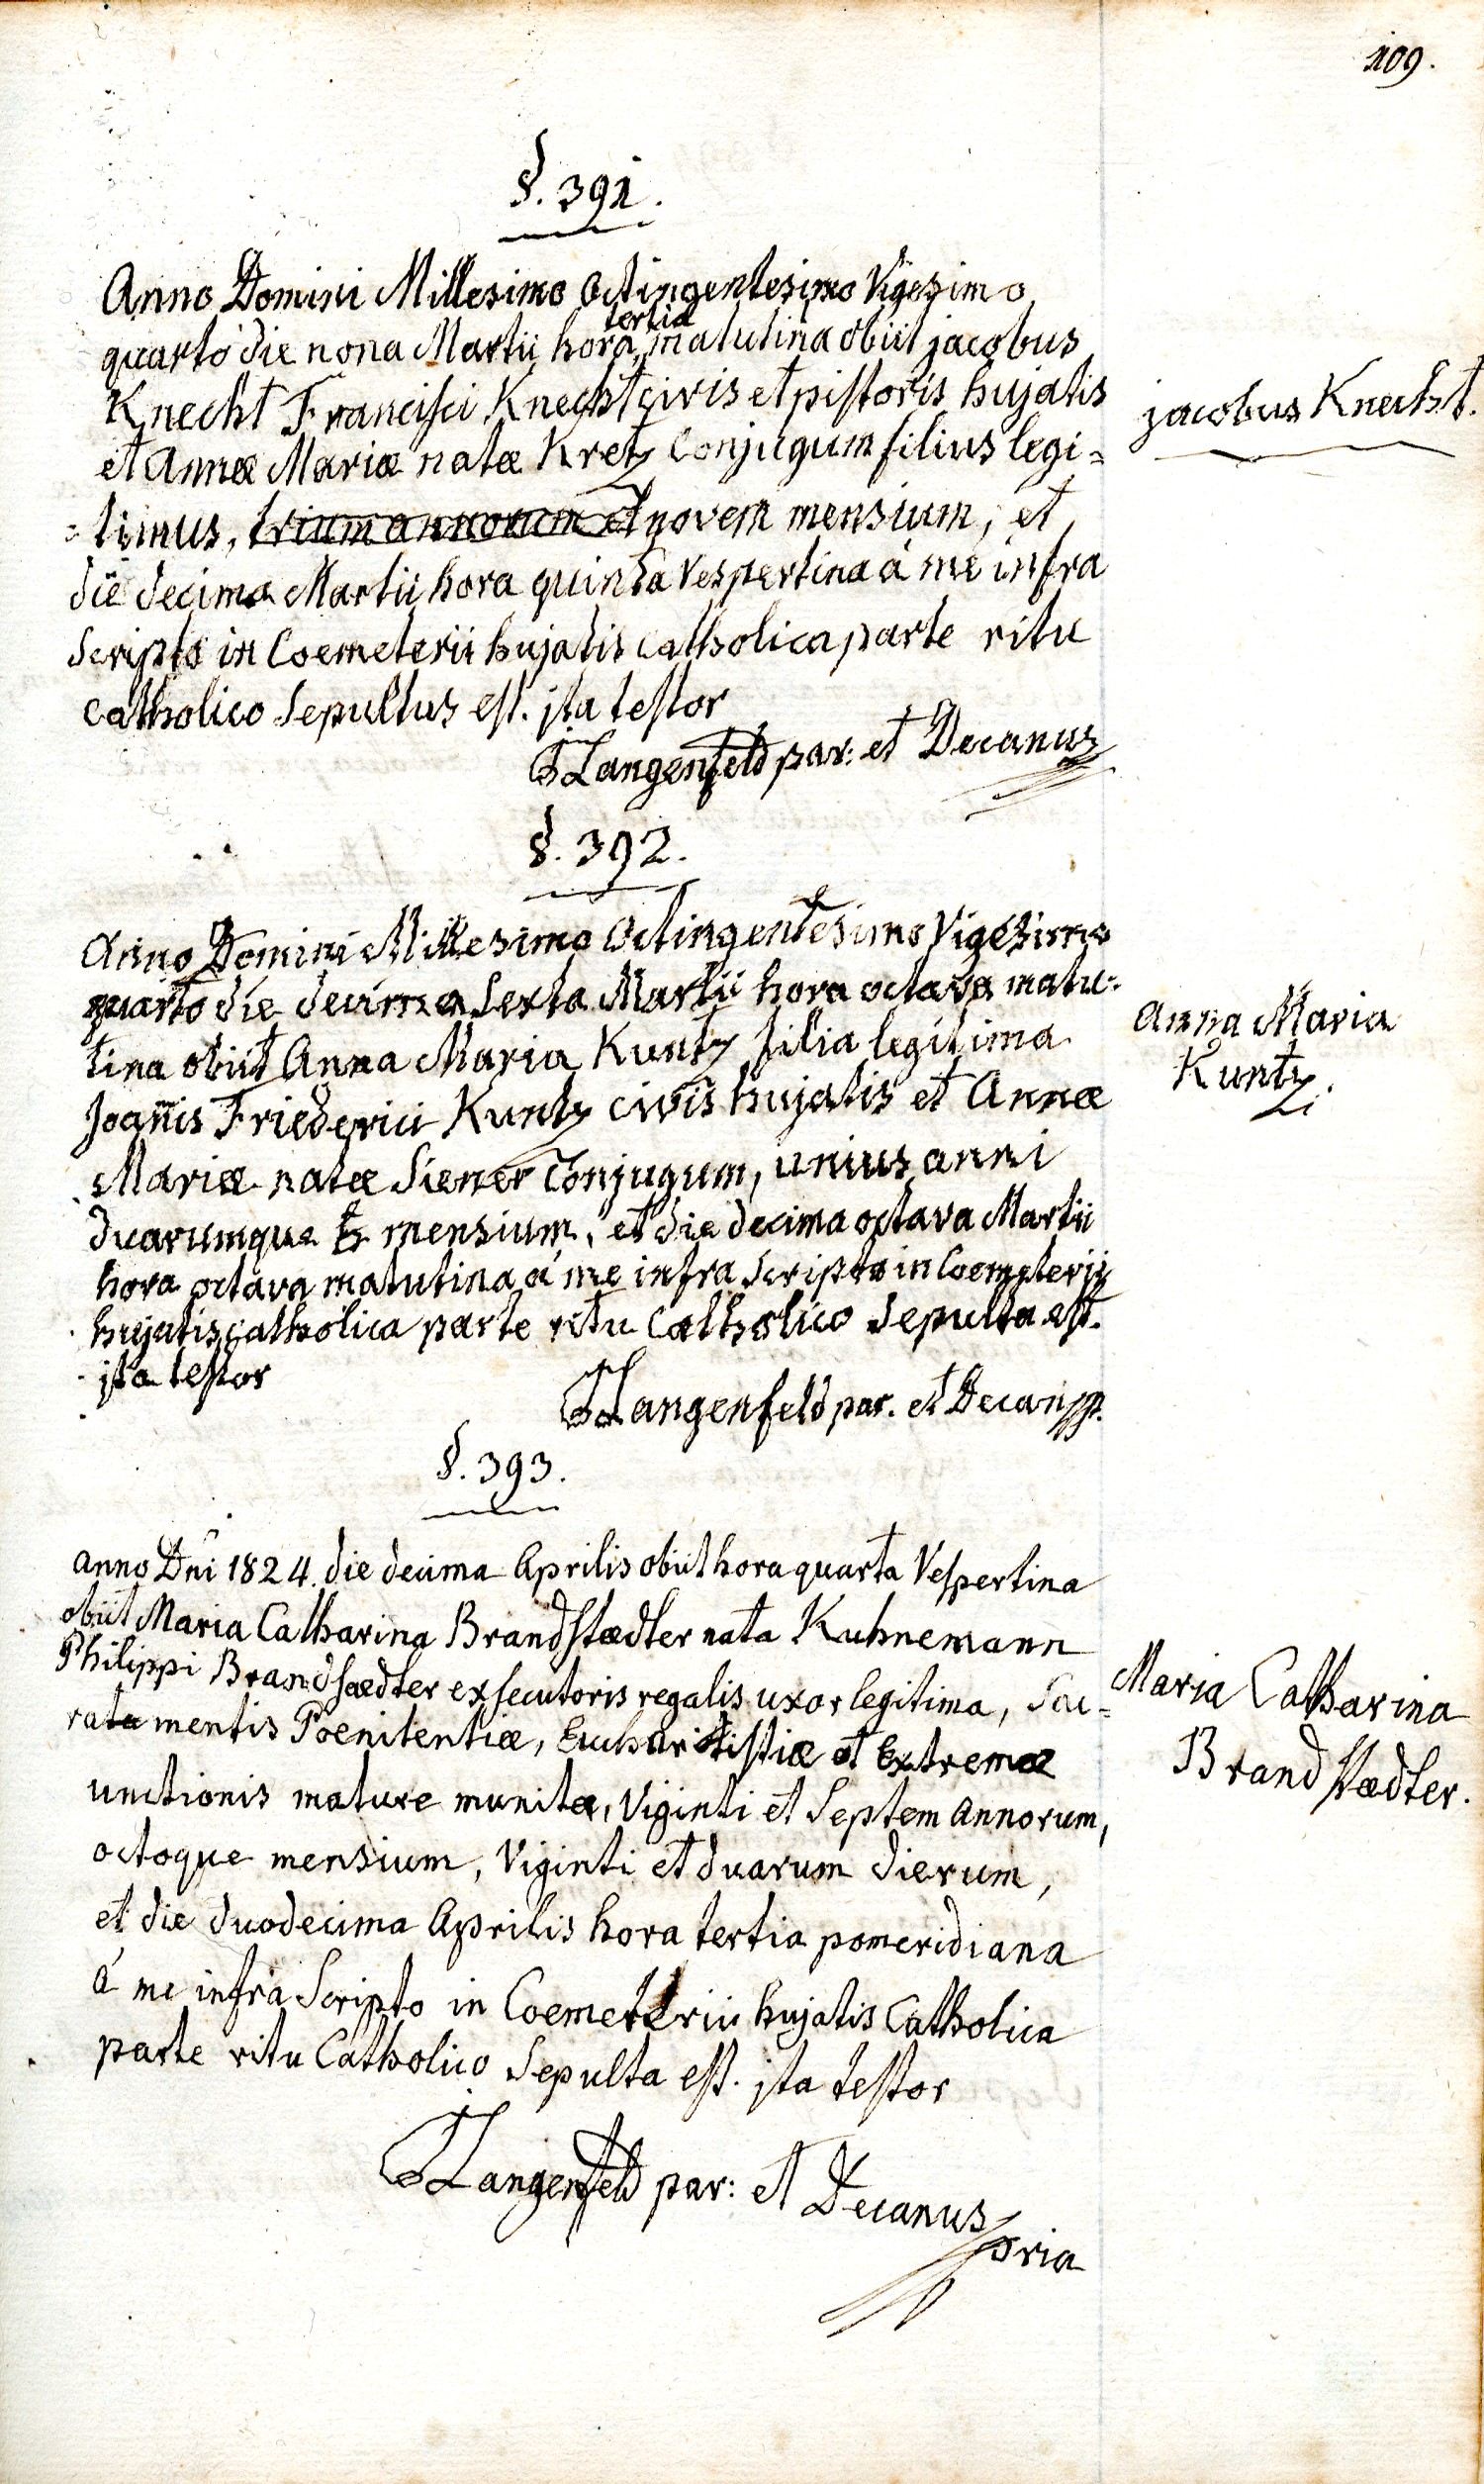 109.
§. 391.
Anno Domini Millesimo Octingentesimo Vigesimo
quarto die nona Martii hora tertia matutina obiit jacobus
Knecht Francisci Knecht civis et pistoris hujatis
et Annæ Mariæ natæ Kretz Conjugum filius legi=
=timus, trium annorum et novem mensium, et
die decima Martii hora quinta Vespertina á me infra
Scripto in Coemeterii hujatis catholica parte ritu
catholico Sepultus est. jta testor
Langenfeld par: et Decanus
jacobus Knecht.
§. 392.
Anno Domini Millesimo Octingentesimo Vigesimo
quarto die decima Sexta Martii hora octava matu=
tina obiit Anna Maria Kuntz filia legitima
Joañis Friederici Kuntz civis hujatis et Annæ
Mariæ natæ Siener Conjugum, unius anni
duarumque mensium, et die decima octava Martii
hora octava matutina á me infra Scripto in Coemeterii
hujatis catholica parte ritu Catholico Sepulta est.
jta testor
Langenfeld par. et Decan
Anna Maria
Kuntz.
§. 393.
anno Dni 1824. die decima Aprilis obiit hora quarta Vespertina
obiit Maria Catharina Brandstædter nata Kuhnemann
Philippi Brandsædter exsecutoris regalis uxor legitima, Sac=
ratamentis Poenitentiæ, Eucharististiæ et Extremæ
unctionis mature munita, Viginti et Septem annorum,
octoque mensium, Viginti et duarum dierum,
et die duodecima Aprilis hora tertia pomeridiana
á me infra Scripto in Coemeterii hujatis Catholica
parte ritu Catholico Sepulta est. jta testor
Langenfeld par: et Decanus
pria
Maria Catharina
Brandstædter.